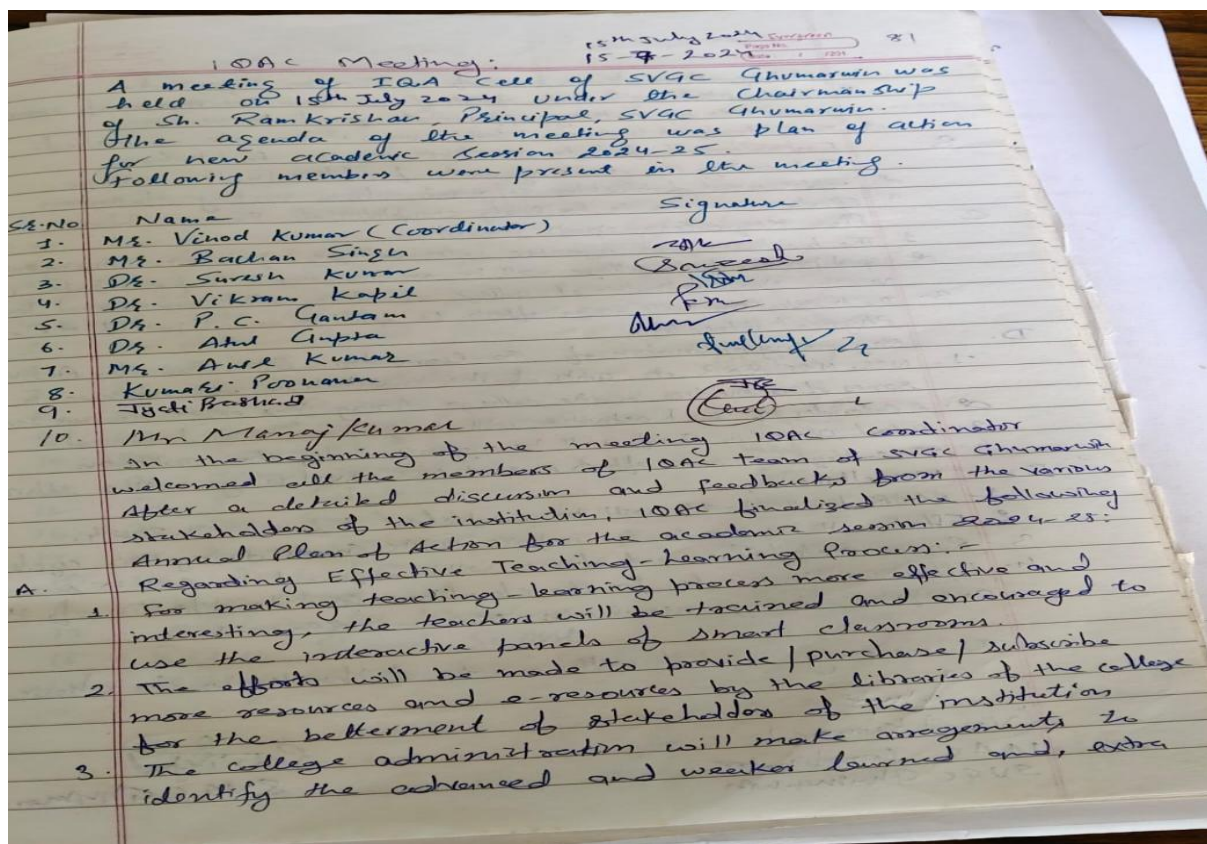 15th July 2024 Evergreen
Page No.
81
IQAC Meeting: 15-7-2024
A meeting of IQA Cell of SVGC Ghumarwin was
held on 15th July 2024 under the Chairmanship
of Sh. Ram Krishan, Principal, SVGC Ghumarwin.
The agenda of the meeting was plan of action
for new academic session 2024-25.
Following members were present in the meeting.
Sr. No Name Signature
1. Mr. Vinod Kumar (Coordinator)
2. Mr. Bachan Singh
3. Dr. Suresh Kumar
4. Dr. Vikram Kapil
5. Dr. P. C. Gautam
6. Dr. Atul Gupta
7. Mr. Anil Kumar
8. Kumari Poonam
9. Jyoti
10. Mr Manoj Kumar
In the beginning of the meeting IQAC coordinator
welcomed all the members of IQAC team of SVGC Ghumarwin
After a detailed discussion and feedbacks from the various
stakeholders of the institution, IQAC finalized the following
Annual Plan of Action for the academic session 2024-25:
A. Regarding Effective Teaching-Learning Process:-
1. For making teaching-learning process more effective and
interesting, the teachers will be trained and encouraged to
use the interactive panels of smart classrooms.
2. The efforts will be made to provide/purchase/subscribe
more resources and e-resources by the libraries of the college
for the betterment of stakeholders of the institution
3. The college administration will make arragements to
identify the advanced and weaker learned and, extra